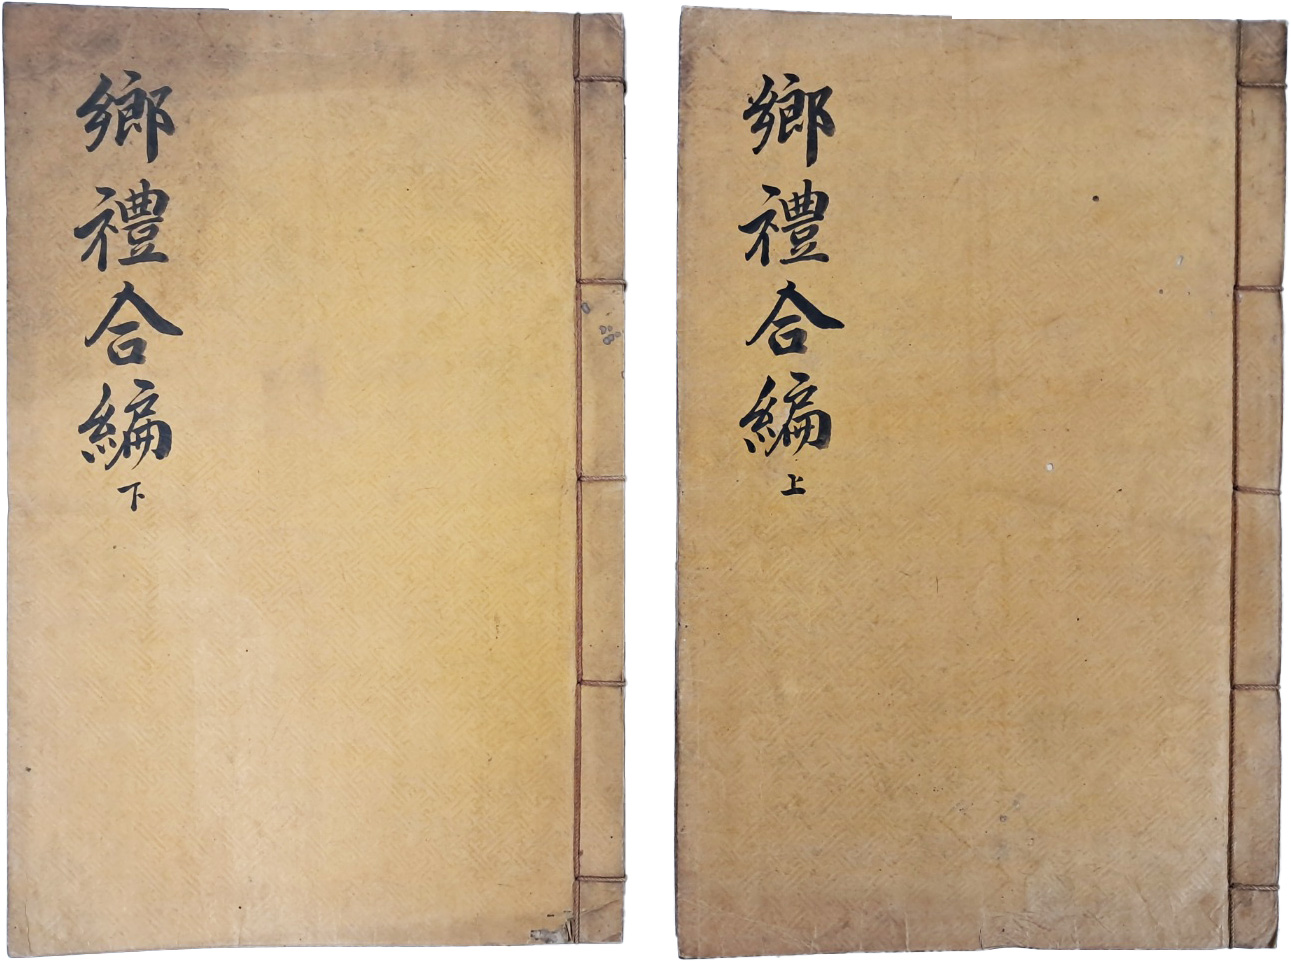 鄕禮合編上
鄕禮合編下